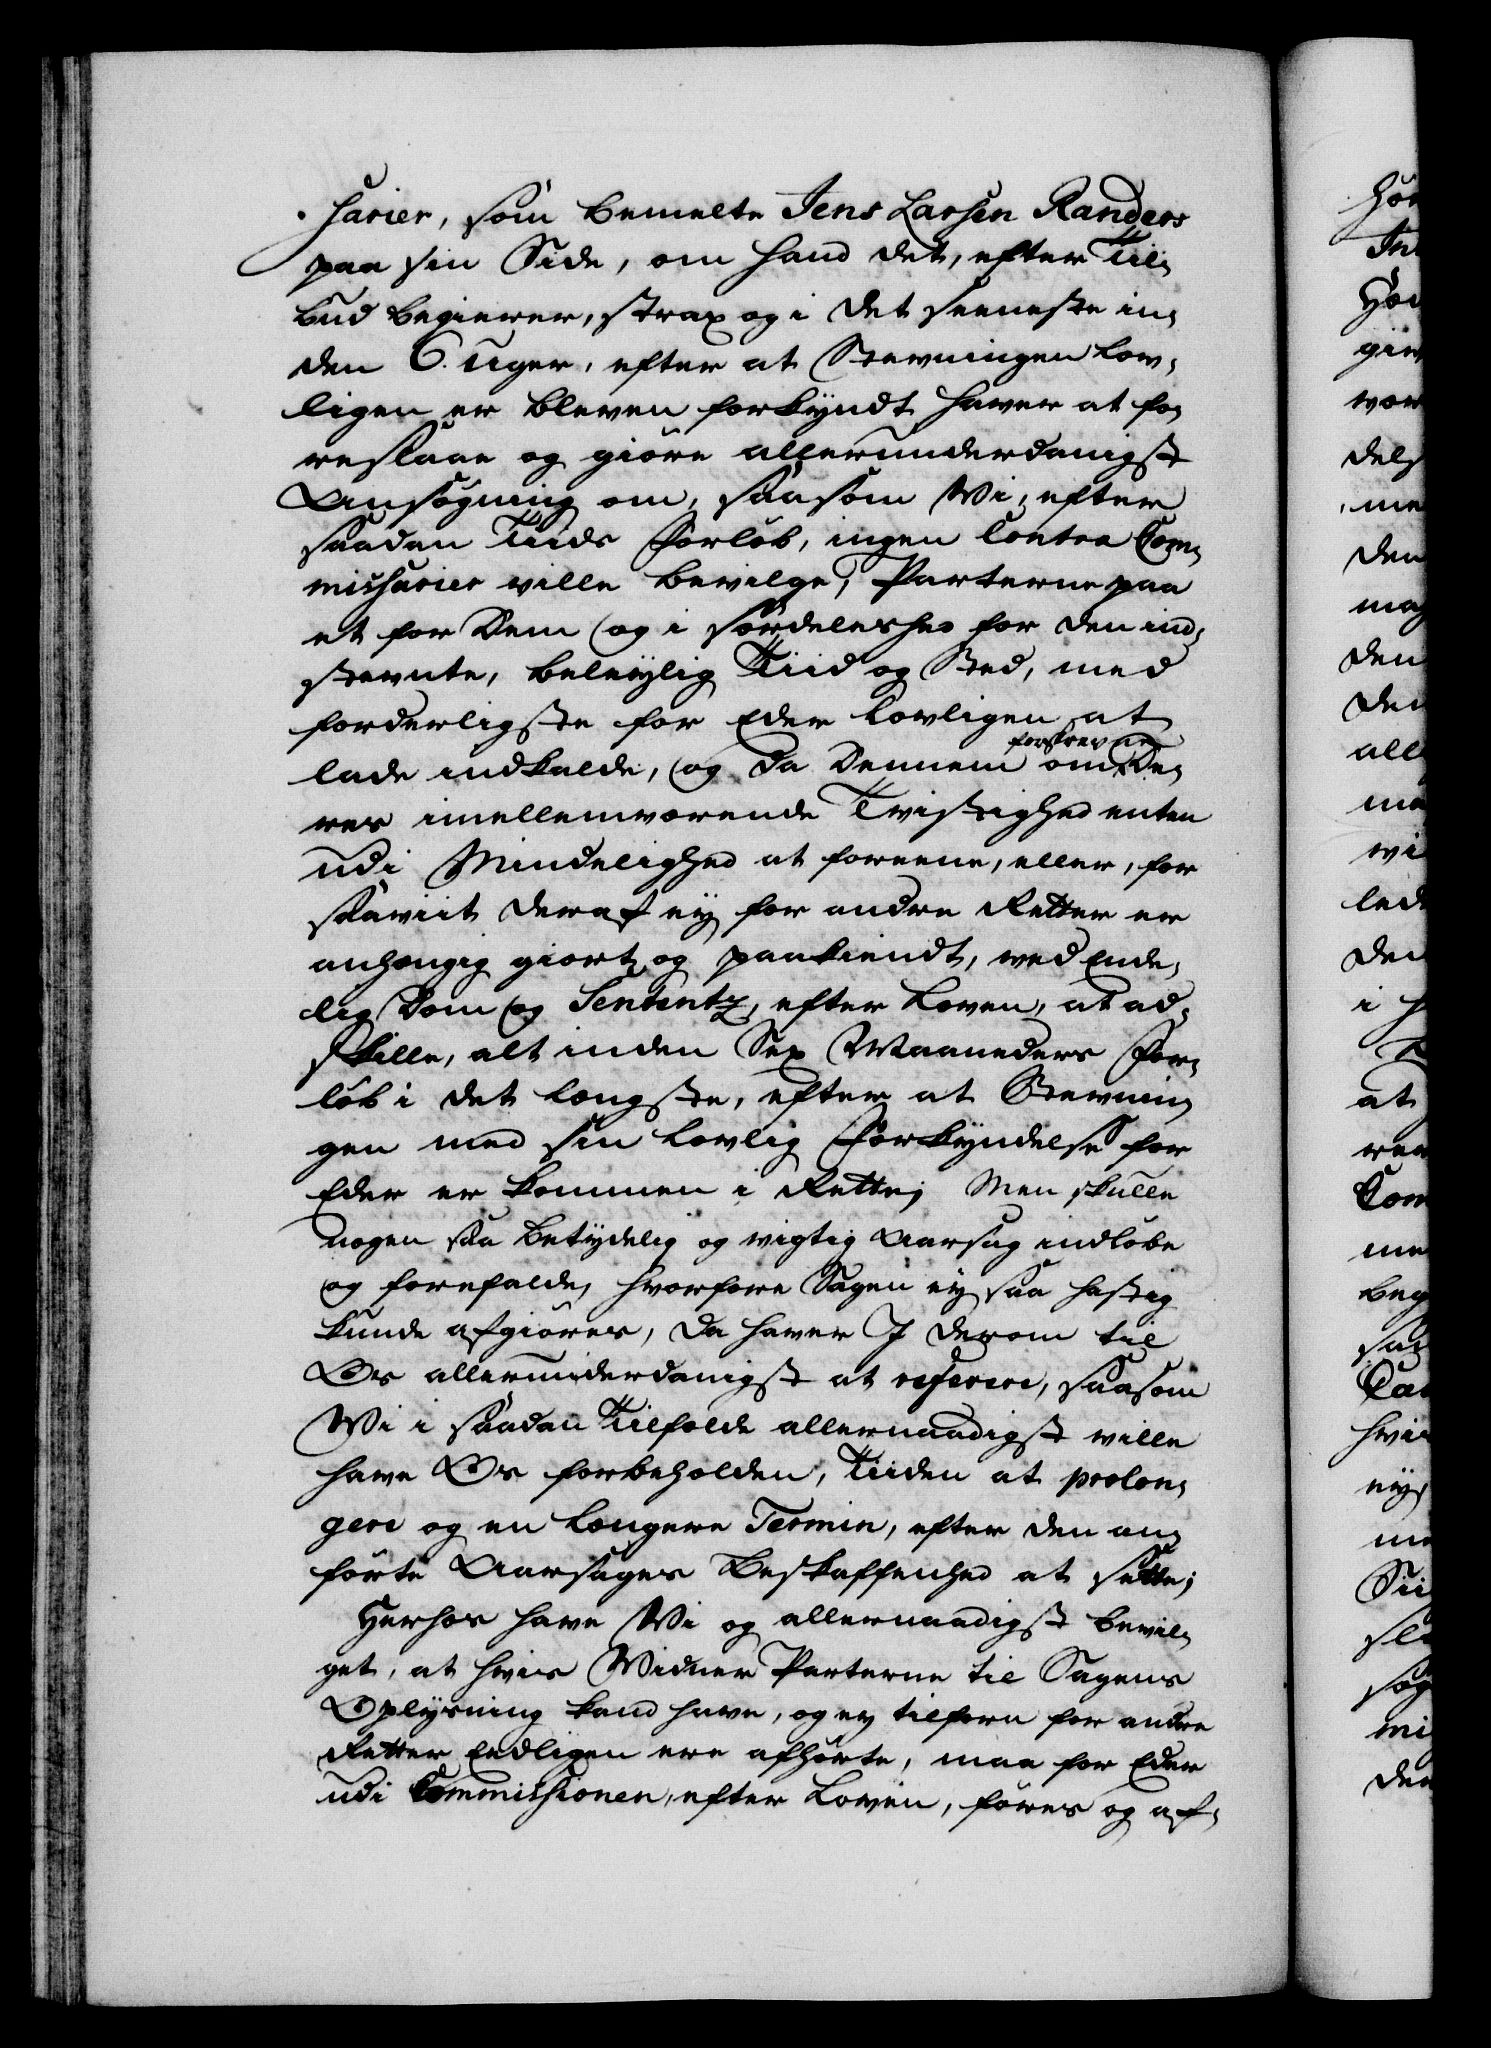 sarier, som bemelte Jens Larsen Randers
paa sin Side, om hand det, efter Til-
bud begierer, strax og i det seeneste in-
den 6. uger, efter at Stevningen lov-
ligen er bleven forkyndt haver at fo-
reslaae og giøre allerunderdanigst
Ansøgning om, saasom Wi, efter
saadan Tiids Forløb, ingen Contra Com-
missarier ville bevilge, Parterne paa
et for Dem og i særdeleshed for den ind-
stevnte, beleylig Tiid og Sted, med
forderligste for Eder lovligen at
lade indkalde, og da Dennem om forskrevne De-
res imellemværende Tvistighed enten
udi Mindelighed at foreene, eller, for
saaviit deraf ey for andre Retter er
anhængig giort og paakiendt, ved Ende-
lig Dom og Sententz, efter Loven, at ad-
skille, alt inden Sex Maaneders For-
løb i det længste, efter at Stevnin-
gen med sin lovlig Forkyndelse for
Eder er kommen i Rette; Men skulle
nogen saa betydelig og vigtig Aarsag indløbe
og forefalde, hvorfore Sagen ey saa hastig
kunde afgiøres, da haver I derom til
Os allerunderdanigst at referere, saasom
Wi i saadan Tilfælde allernaadigst ville
have Os forbeholden, Tiiden at prolon-
gere og en længere Termin, efter den an-
førte Aarsages Beskaffenhed at sette;
Herhos have Wi og allernaadigst bevil-
get, at hvis Widner Parterne til Sagens
Oplysning kand have, og ey tilforn for andre
Retter Eedligen ere afhørte, maa for Eder
udi Commissionen, efter Loven, føres og af-